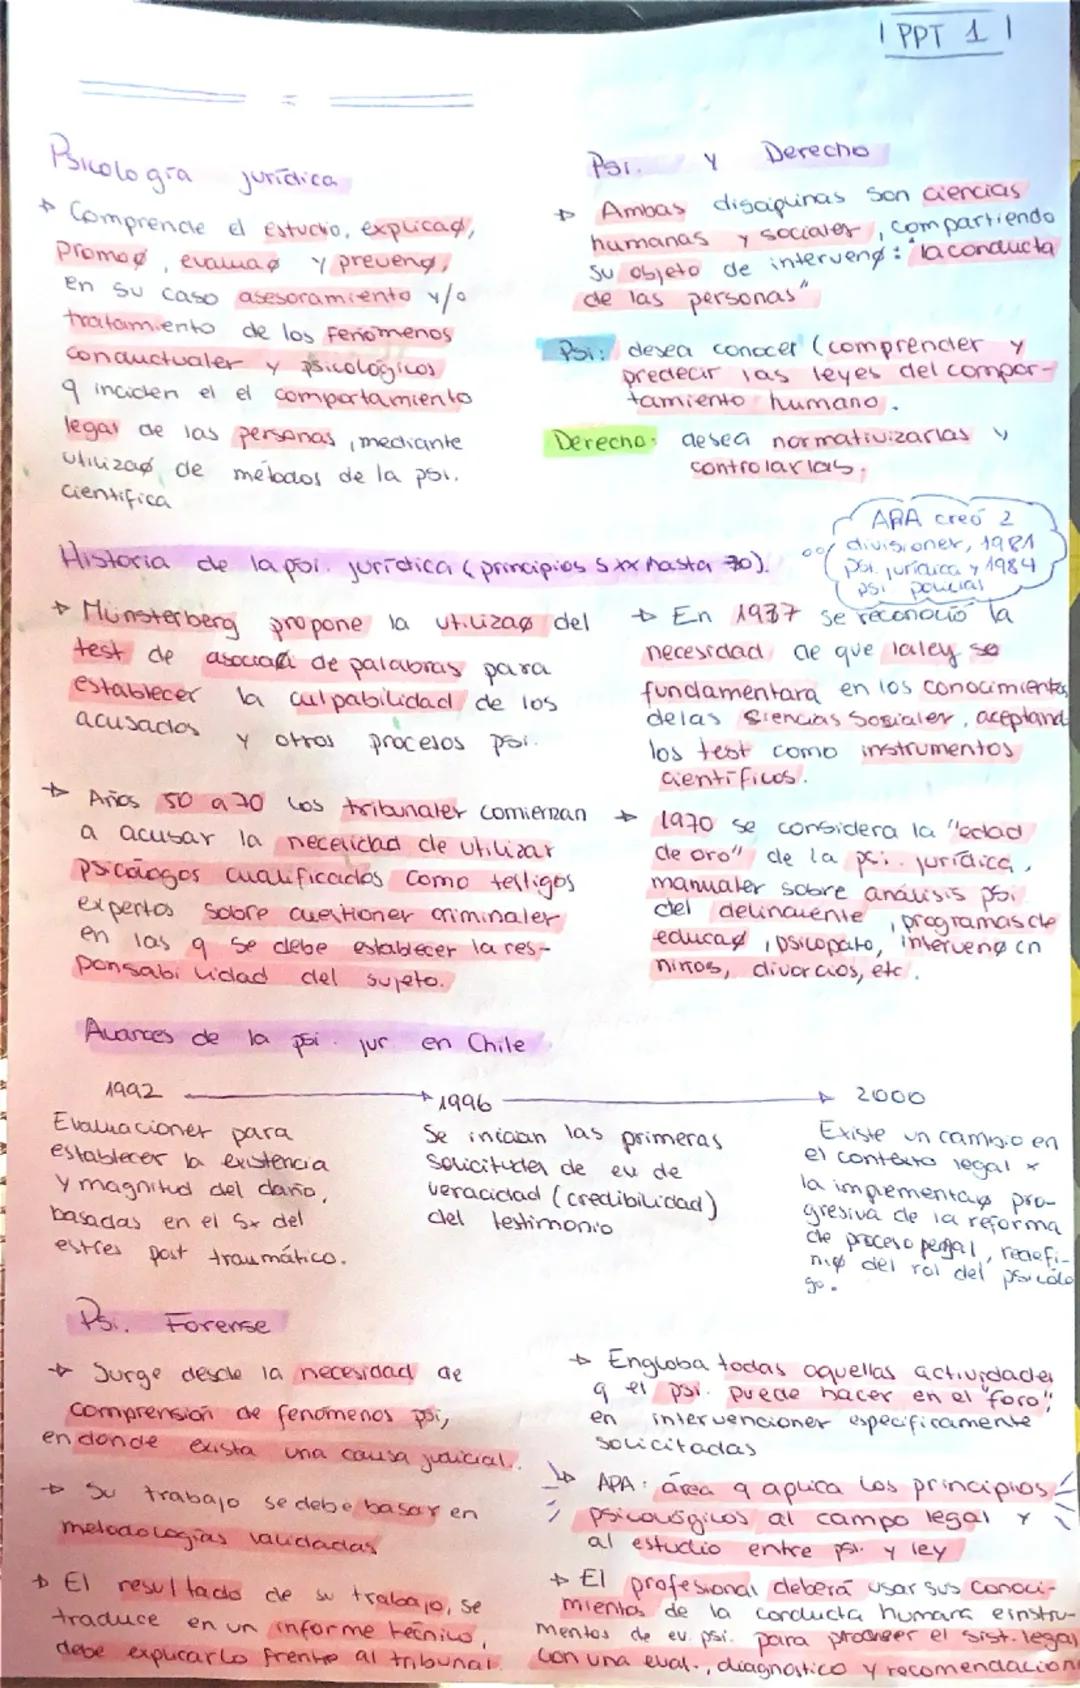 PPT 1
Psicología jurídica
Comprende el estudio, explicaø,
promoø, evaluaø y prevenø,
en su caso asesoramiento y/o
tratamiento de los fenómenos
conductuales y psicológicos
q inciden el el comportamiento
legal de las personas, mediante
utilizaø de métodos de la psi.
científica
Psi. y Derecho
Ambas disciplinas son ciencias
humanas y sociales, compartiendo
su objeto de intervenø: "la conducta
de las personas"
Psi: desea conocer (comprender y
predecir las leyes del compor-
tamiento humano.
Derecho: desea normativizarlas y
controlarlas.
APA creó 2
divisiones, 1981
psi. jurídica y 1984
psi policial
Historia de la psi. jurídica (principios S XX hasta 70).
Münsterberg propone la utilizaø del
test de asociaø de palabras para
establecer la culpabilidad de los
acusados y otros procesos psi.
Años 50 a 70 los tribunales comienzan
a acusar la necesidad de utilizar
psicólogos cualificados como testigos
expertos sobre cuestiones criminales
en las q se debe establecer la res-
ponsabilidad del sujeto.
En 1937 se reconoció la
necesidad de que la ley se
fundamentara en los conocimientos
de las Ciencias Sociales, aceptand
los test como instrumentos
científicos.
1970 se considera la "edad
de oro" de la psi. jurídica,
manuales sobre análisis psi
del delincuente, programas de
educaø, psicopato, intervenø en
niños, divorcios, etc.
Avances de la psi. jur. en Chile
1992
Evaluaciones para
establecer la existencia
y magnitud del daño,
basadas en el Sx del
estres post traumático.
1996
Se inician las primeras
solicitudes de ev de
veracidad (credibilidad)
del testimonio
2000
Existe un cambio en
el contexto legal x
la implementaø pro-
gresiva de la reforma
de proceso penal, redefi-
niø del rol del psicólo
go.
Psi. Forense
Surge desde la necesidad de
comprensión de fenómenos psi,
en donde exista una causa judicial.
Su trabajo se debe basar en
metodologías validadas
El resultado de su trabajo, se
traduce en un informe técnico,
debe explicarlo frente al tribunal.
Engloba todas aquellas actividades
q el psi. puede hacer en el "foro",
en intervenciones específicamente
solicitadas
APA: área q aplica los principios
psicológicos al campo legal y
al estudio entre psi. y ley
El profesional deberá usar sus conoci-
mientos de la conducta humana e instru-
mentos de ev. psi. para proveer el sist. legal
con una eval., diagnostico y recomendacion